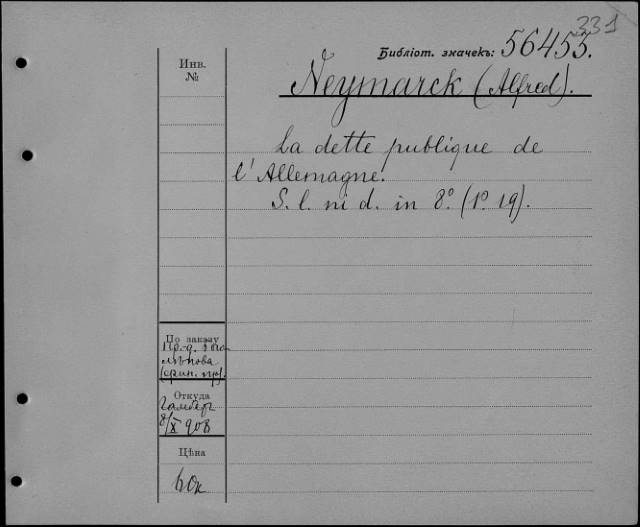 331
Библіот. значекъ: 56455.
Инв.
№
Neymarck (Alfred).
La dette publique de
l'Allemagne.
S. l. ni d. in 8º. (1º. 19).
По заказу
Откуда
8/X 908
Цѣна
60к